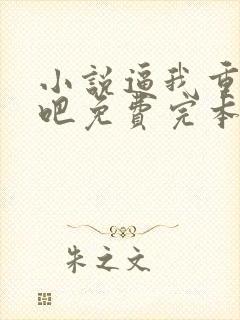 小说逼我重
吧免费完本
朱之文